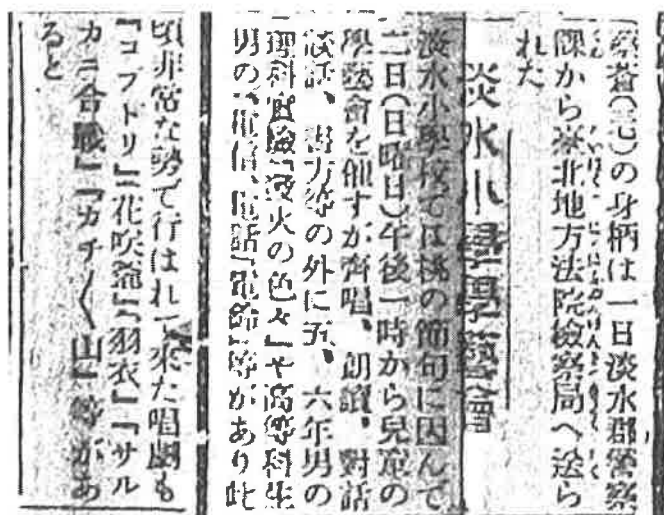 蔡蒼(三九)の身柄は一日淡水郡警察
課から臺北地方法院檢察局へ送ら
れた
淡水小學學藝會
淡水小學校では桃の節句に因んで
二日(日曜日)午後一時から兒童の
學藝會を催すが齊唱、朗讀、對話
談話、書方等の外に五、六年男の
理科實驗『發火の色々』や高等科生
男の『電信、電話』『電飾』等があり此
頃非常な勢で行はれて來た唱劇も
『コブトリ』『花咲爺』『羽衣』『サル
カニ合戰』『カチ〳〵山』等があ
ると